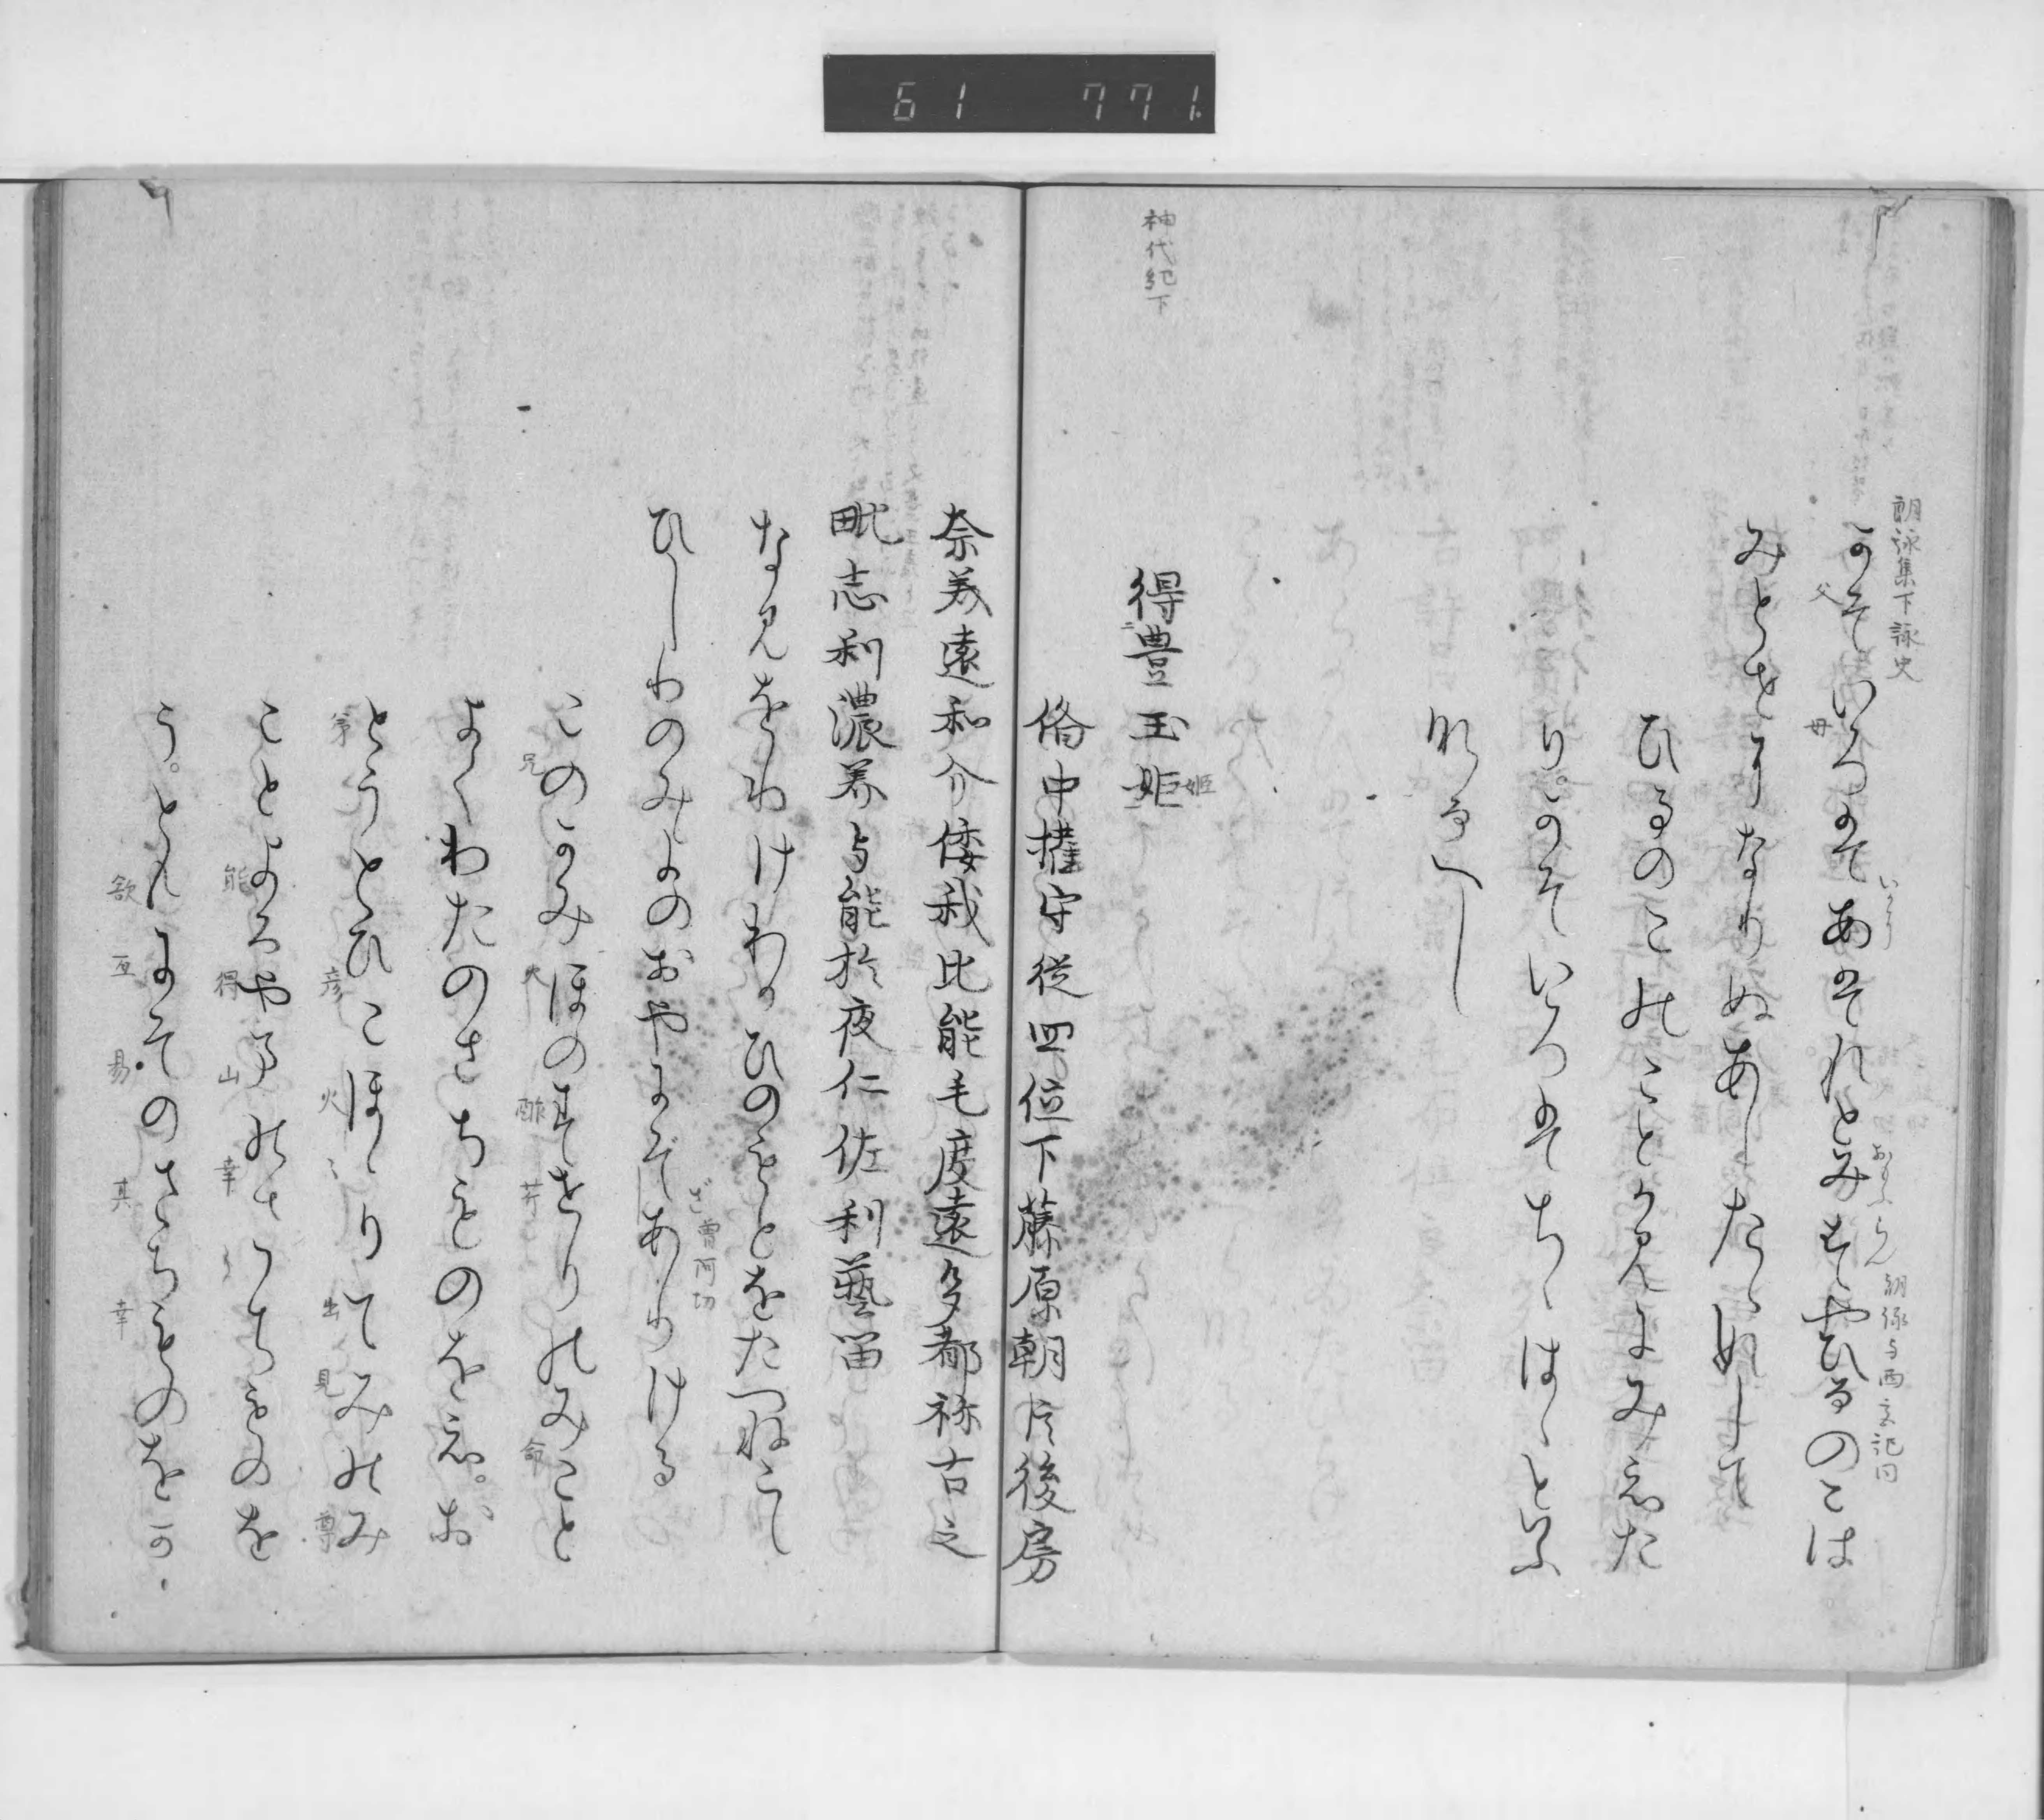 61 771
朗詠集下詠史
かそいろはあはれとみすやひるのこは
父 母
いかに おもふらん 朝綱
みとせになりぬあしたゝすして
ひるのこのことかみにみえた
り。かそいろはちゝはゝといふ
なるへし
神代紀下
得豊玉姫
姫
備中権守従四位下藤原朝臣後房
奈美遠和介倭我比能毛度遠多都祢古之
毗志利濃美与能於夜仁佐利藝留
なみをわけわかひのもとをたつねこし
ひしりのみよのおやにそありける
ざ 曽阿切
このかみほのすせりのみこと
兄 火 酢芹 命
よくわたのさちものをえ。お
とうとひこほゝりてみのみ
弟 彦 火ゝ 出見 尊
ことよろやまのさつちものを
能 得 山 幸
う。ともにそのさちものをか
欲 互 易 其 幸